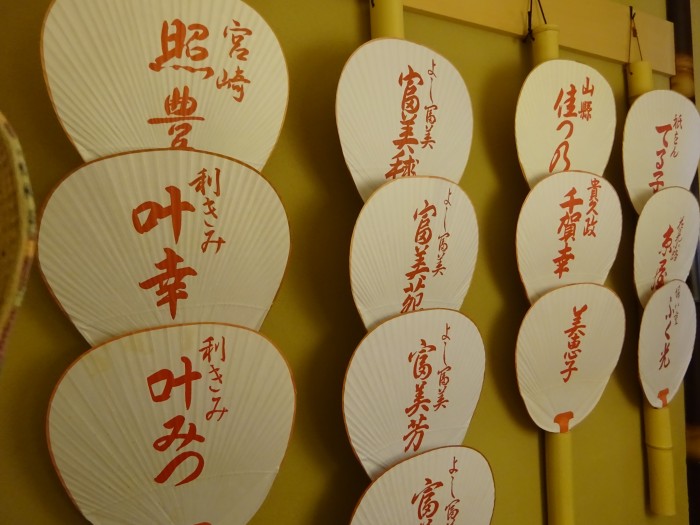 宮崎
照豊
利きみ
叶幸
利きみ
叶みつ
よし富美
富美毬
よし富美
富美苑
よし富美
富美芳
よし富美
富美
山縣
佳つ乃
貴久政
千賀幸
美恵子
祗をん
てる子
糸屋
ふく光